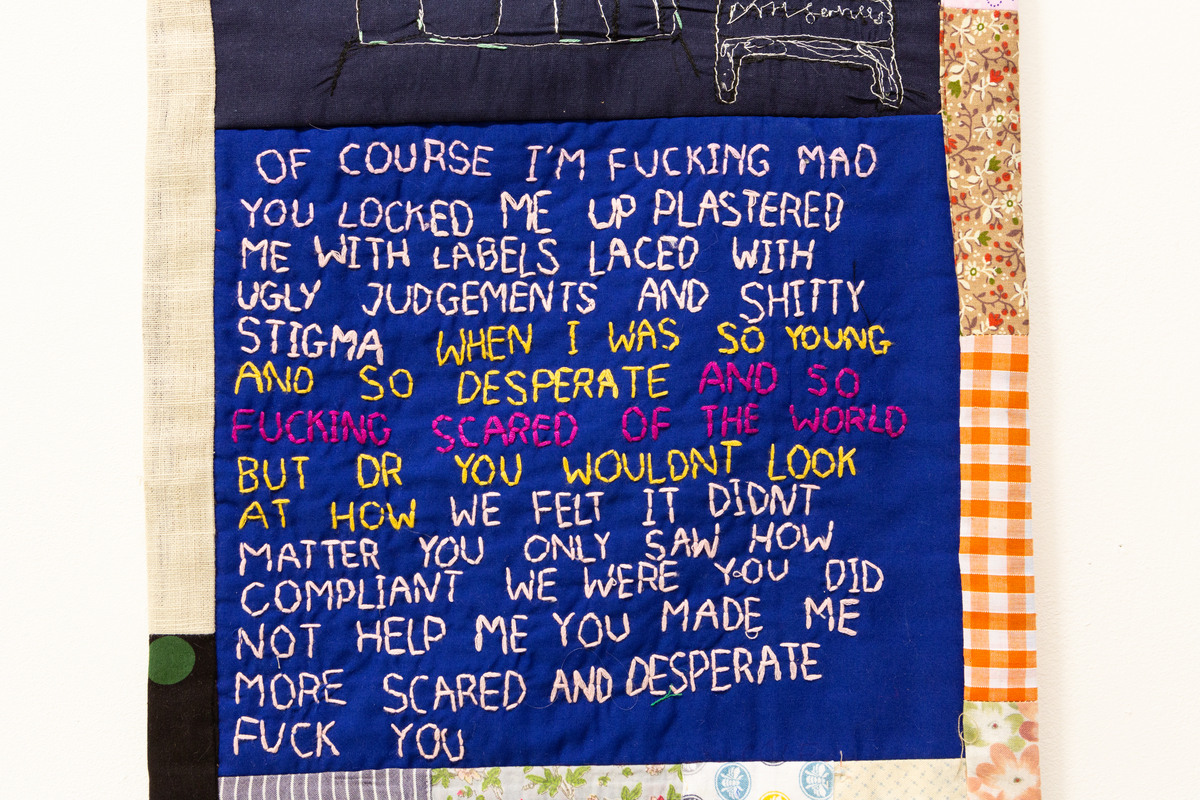 OF COURSE I'M FUCKING MAD
YOU LOCKED ME UP PLASTERED
ME WITH LABELS LACED WITH
UGLY JUDGEMENTS AND SHITTY
STIGMA WHEN I WAS SO YOUNG
AND SO DESPERATE AND SO
FUCKING SCARED OF THE WORLD
BUT DR YOU WOULDNT LOOK
AT HOW WE FELT IT DIDNT
MATTER YOU ONLY SAW HOW
COMPLIANT WE WERE YOU DID
NOT HELP ME YOU MADE ME
MORE SCARED AND DESPERATE
FUCK YOU